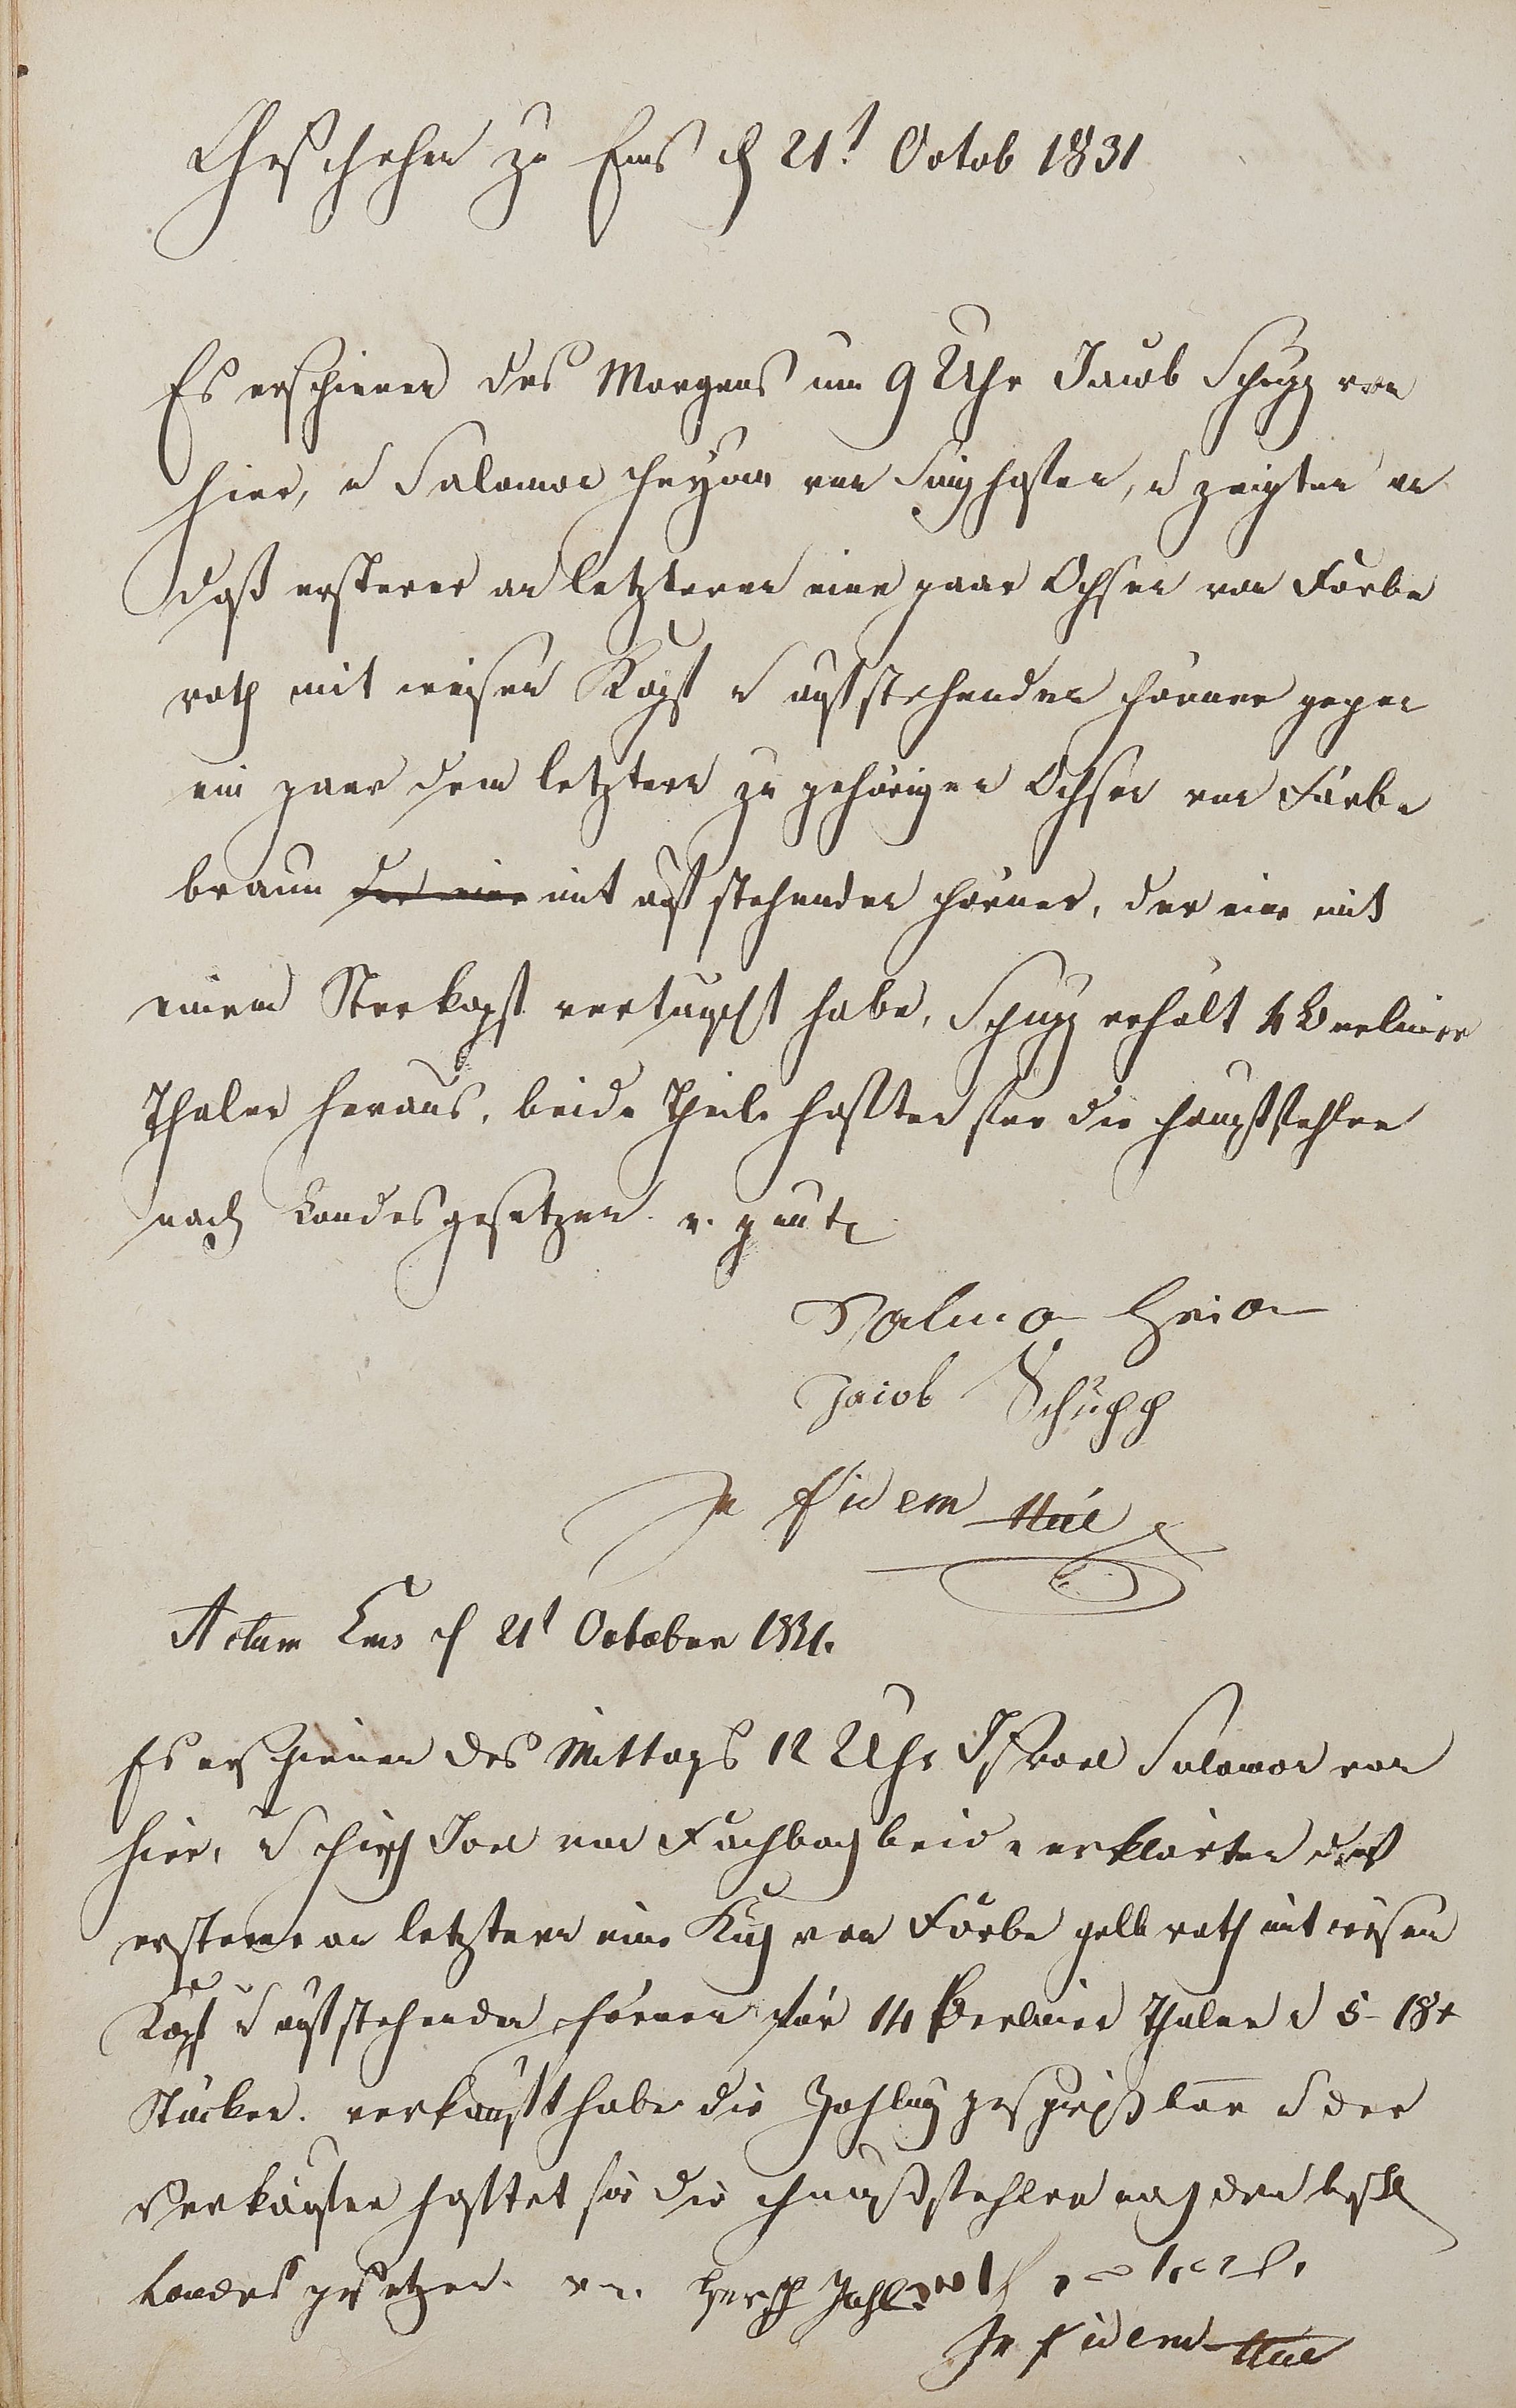 Geschehen zu Ems d 21t Octob 1831
Es erschienen des Morgens um 9 Uhr Jacob Schupp von
hier, u Salomon Heyum von Singhofen, u zeigten an
daß ersterer an letzteren eine paar Ochsen von Farbe
roth mit weisen Kopf u aufstehenden Hörner gegen
ein paar dem letztern zu gehörigen Ochsen von Farbe
braun der eine mit auf stehenden Hörner, der eine mit
einem Sternkopf vertauscht habe, Schupp erhält 4 Berliner
Thaler heraus, beide Theile haften für die Hauptfehler
nach Landesgesetzen. v. g. unt
Salmon Heiom
Jacob Schupp
In fidem
Actum Ems d 21t October 1831.
Es erschienen des Mittags 12 Uhr Israel Salomon von
hier, u Hirsch Joel von Fachbach beide erklärten daß
ersterer an letztern eine Kuh von Farbe gelb roth mit weisen
Kopf u aufstehenden Hörner für 14 Berliner Thaler u 5 - 18
Stücker. verkauft habe die Zahlung geschieht bar u der
Verkäufer haftet für die Hauptfehler nach den
Landes gesetzen. v. Hersch
In fidem